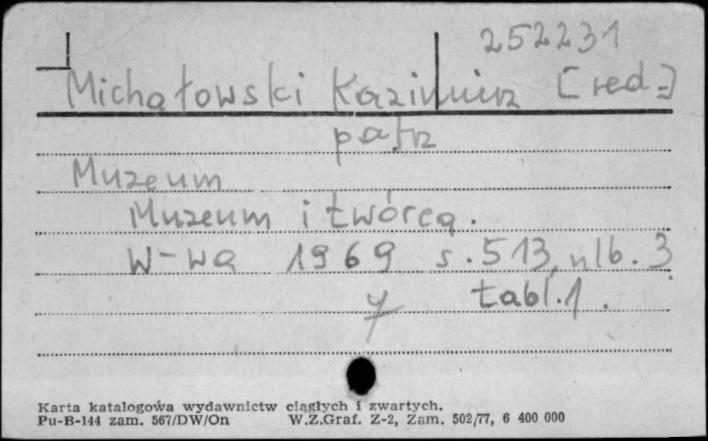 252231
Michałowski Kazimierz [red.]
patrz
Muzeum
Muzeum i twórca.
W-wa 1969 s. 513, nlb. 3
tabl. 1.
Karta katalogowa wydawnictw ciągłych i zwartych.
Pu-B-144 zam. 567/DW/On W.Z.Graf. Z-2, Zam. 502/77, 6 400 000